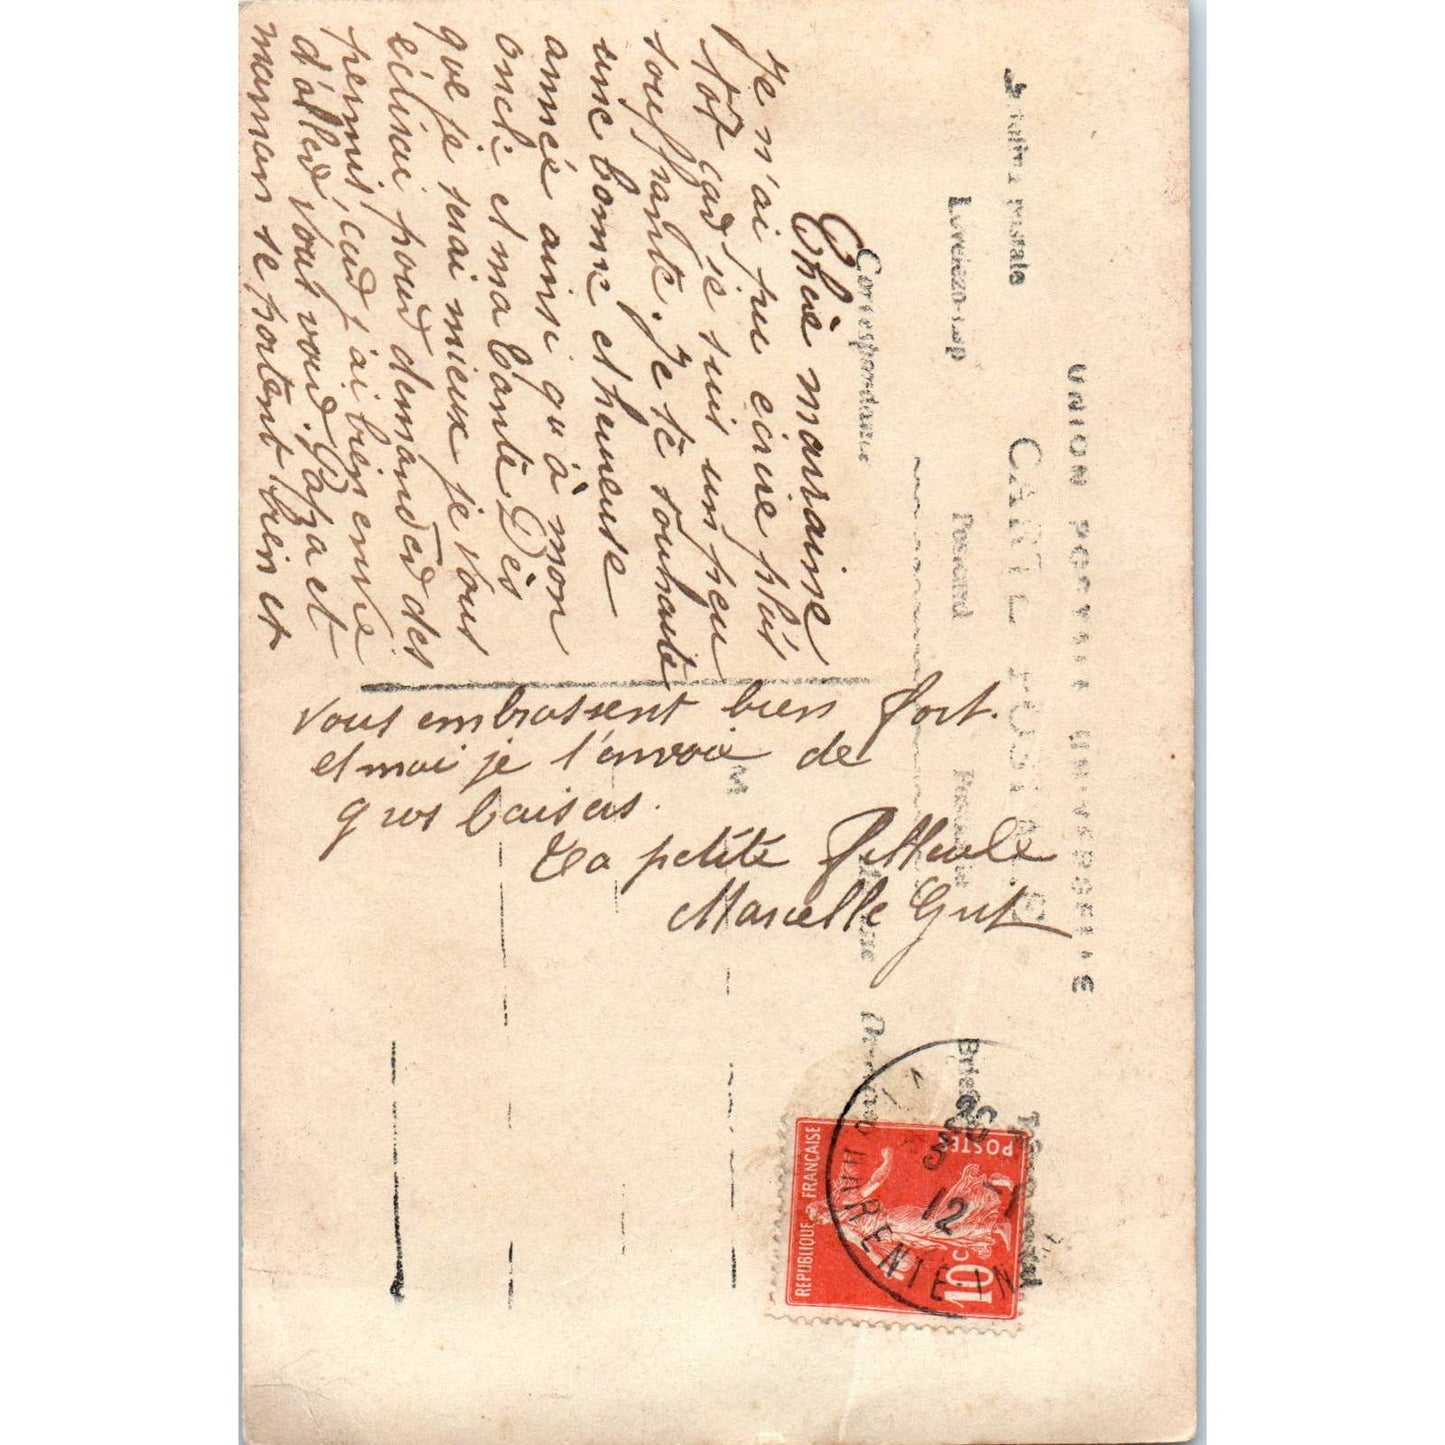 UNION POSTALE UNIVERSELLE
CARTE POSTALE
postale
Postcard
Correspondance
Chère marraine
Je n'ai pu écrire plus
tot car je suis un peu
souffrante. Je te souhaite
une bonne et heureuse
année ainsi qu'à mon
oncle et ma tante Dès
que je serai mieux je vous
écrirai pour demander des
permis, car j'ai bien envie
d'aller vous voir. Papa et
maman se portent bien et
vous embrassent bien fort.
et moi je t'envoie de
gros baisers.
Ta petite filleule
Marcelle Grit
M
REPUBLIQUE FRANÇAISE
POSTES
10c
CHARENTE IN
3 -1
12